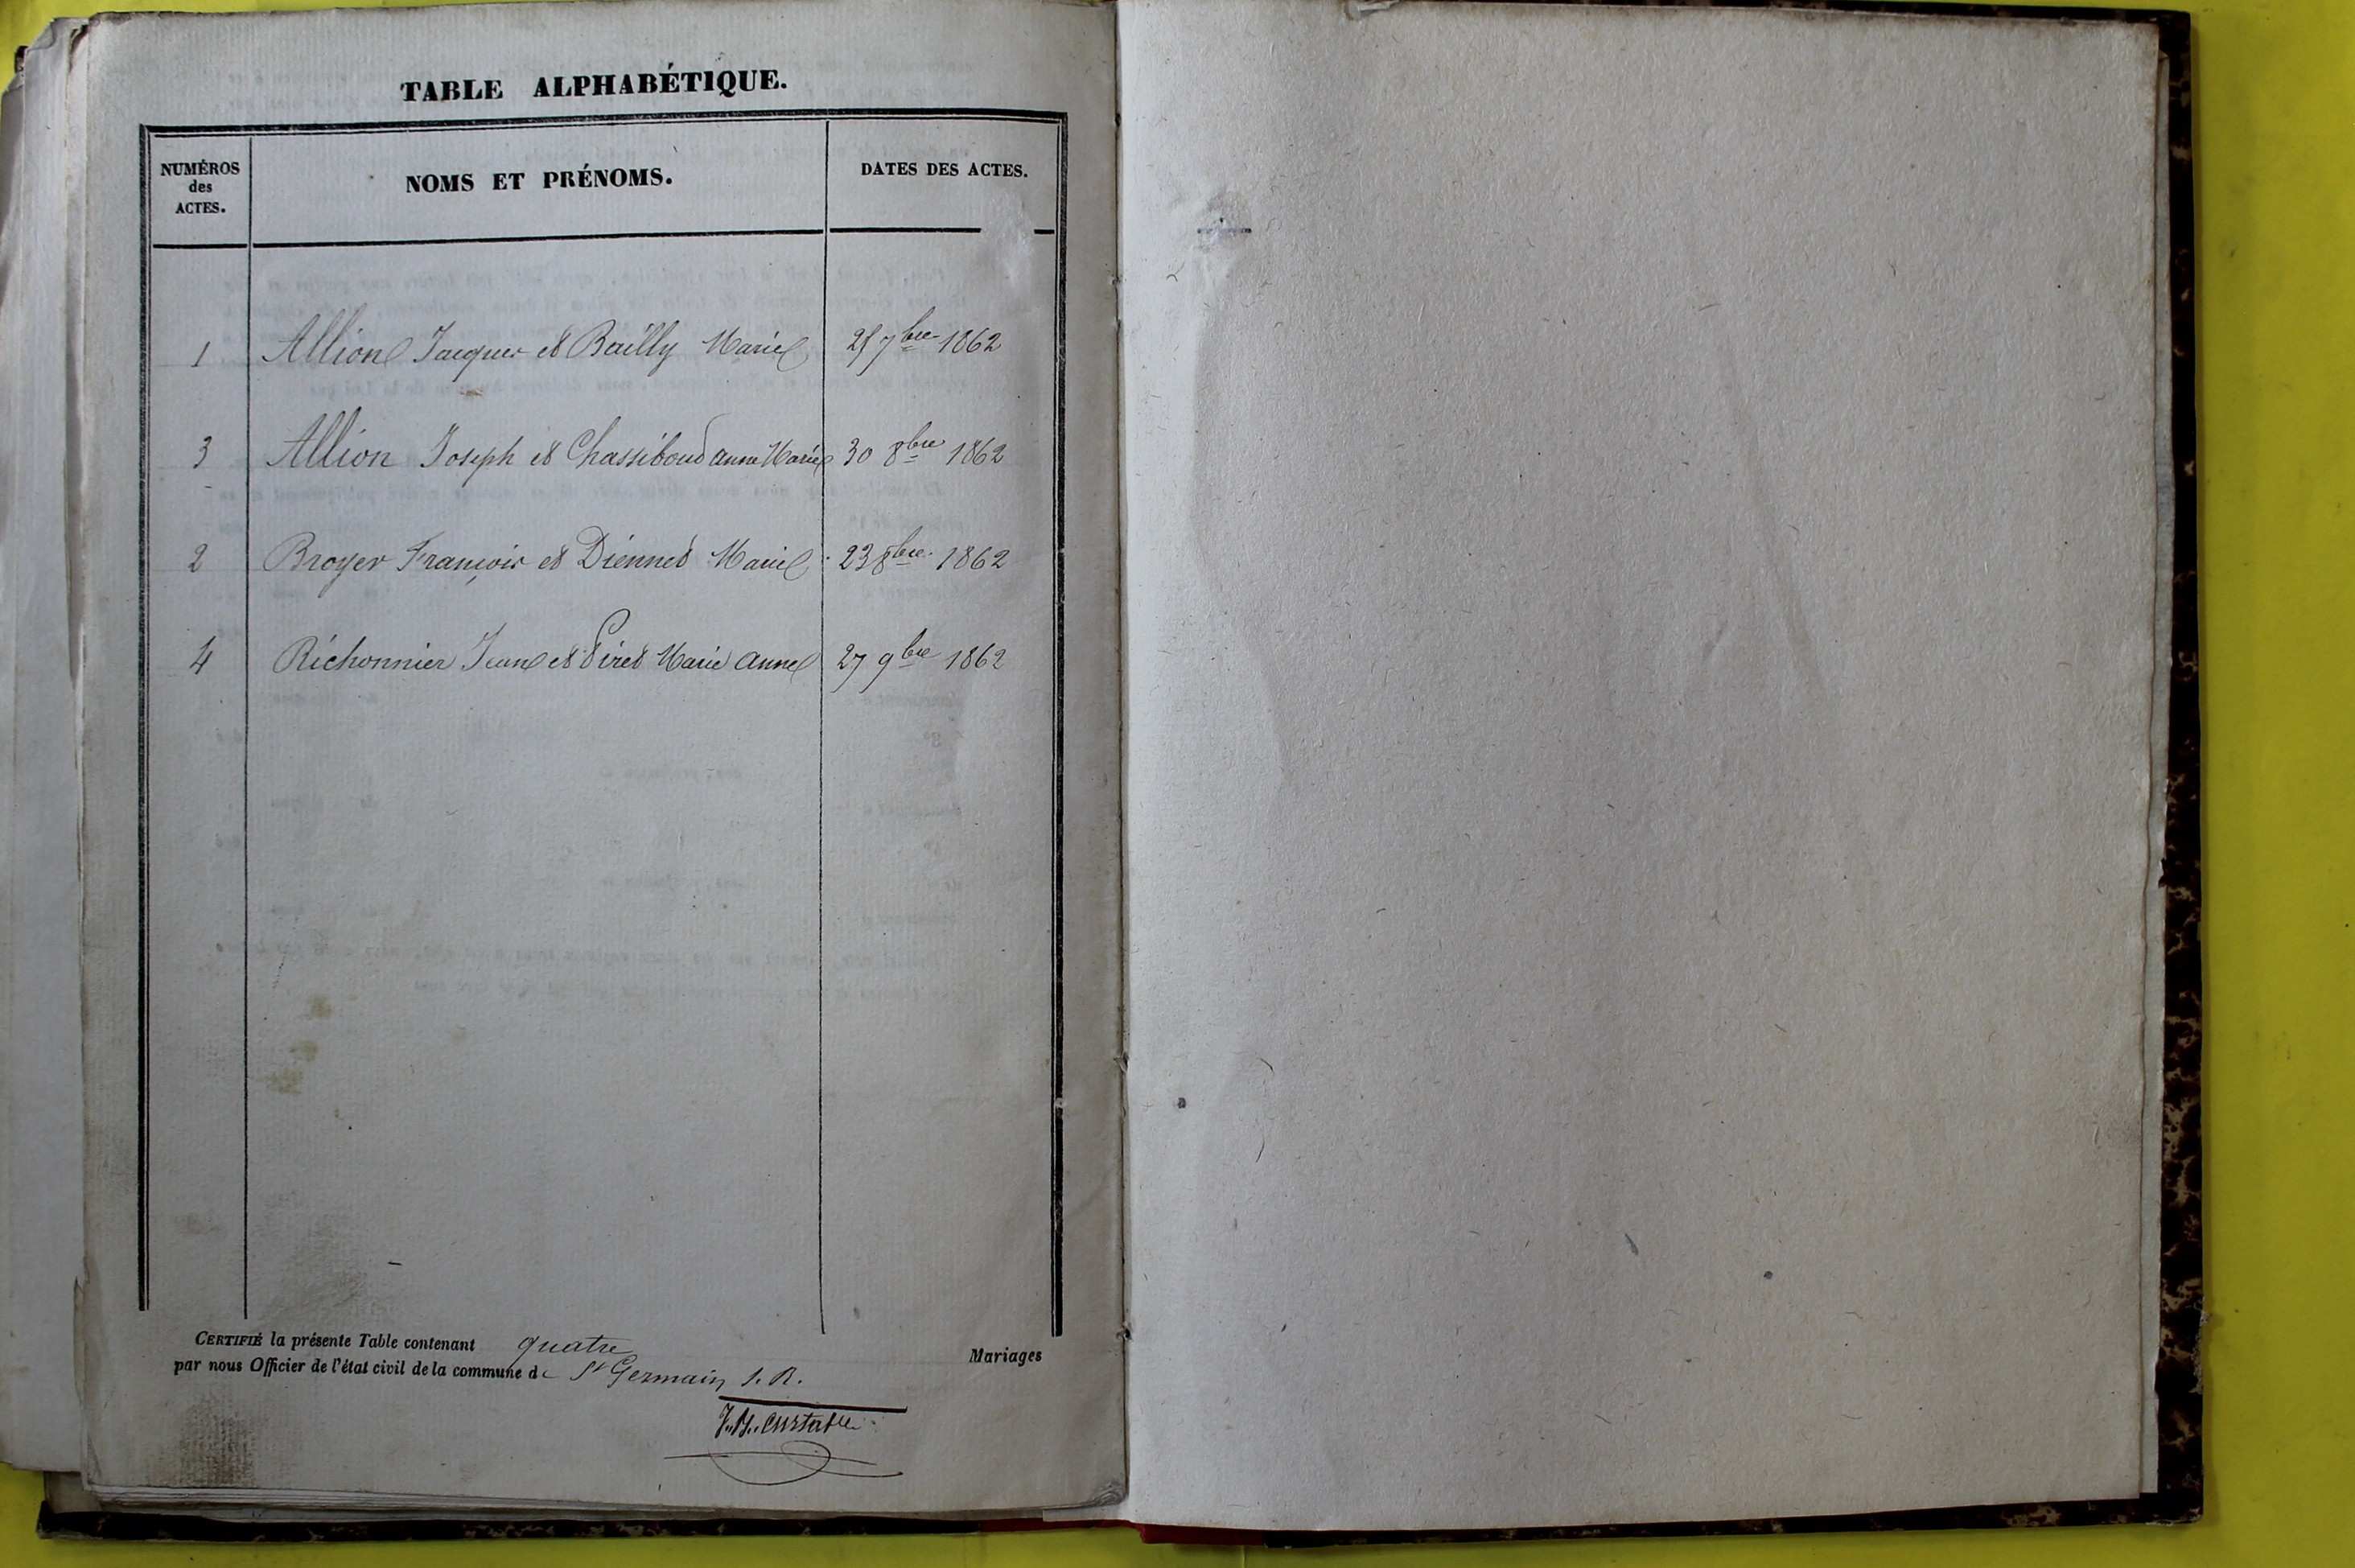 TABLE ALPHABÉTIQUE.
NUMÉROS des ACTES. NOMS ET PRÉNOMS. DATES DES ACTES.
1 Allion Jacques et Bailly Marie 25 7bre 1862
3 Allion Joseph et Chassiboud anne Marie 30 8bre 1862
2 Broyer François et Diennet Marie 23 8bre 1862
4 Richonnier Jean et Piret Marie anne 27 9bre 1862
CERTIFIÉ la présente Table contenant quatre Mariages
par nous Officier de l'état civil de la commune de St Germain s. R.